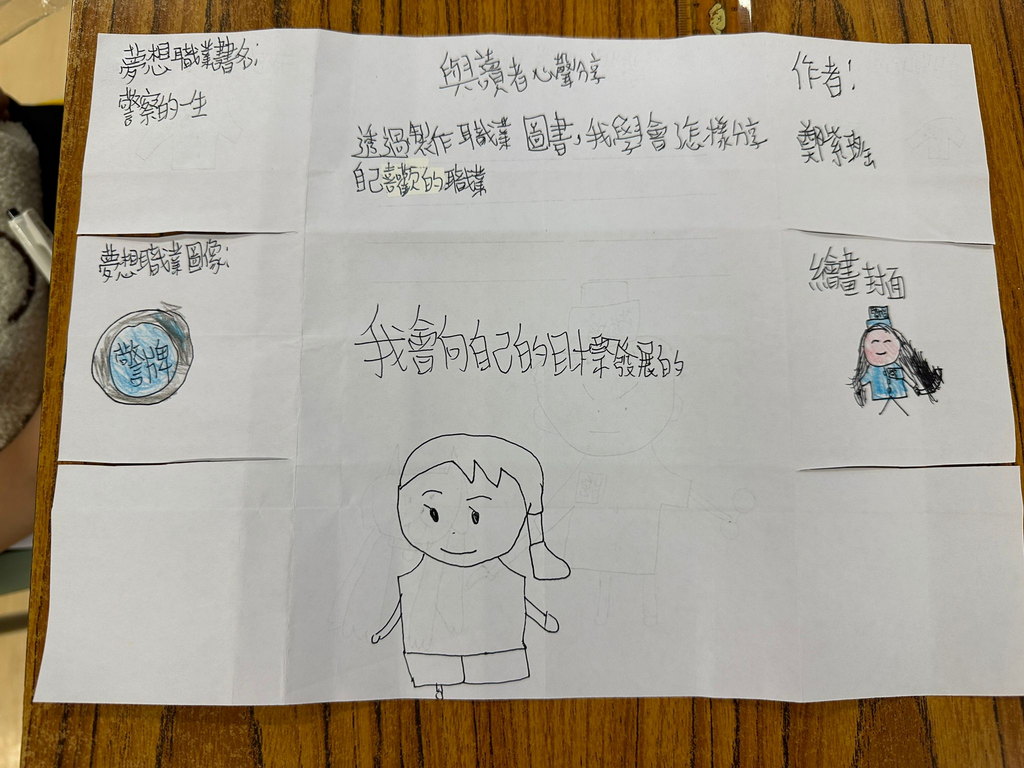 夢想職業書名:
警察的一生
與讀者心聲分享
透過製作職業圖書,我學會怎樣分享
自己喜歡的職業
作者:
鄭紫
夢想職業圖像:
警牌
我會向自己的目標發展的
繪畫封面